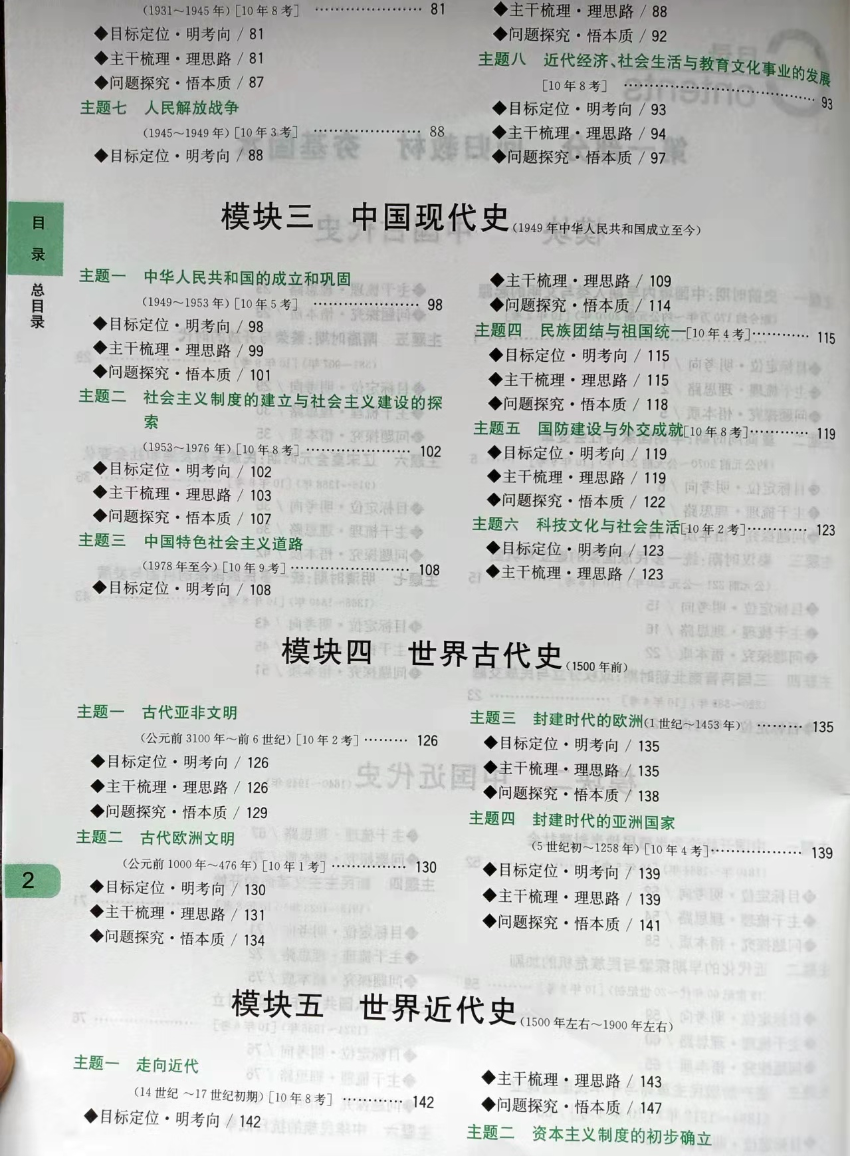 (1931～1945年)[10年8考] ………………… 81
◆目标定位·明考向 / 81
◆主干梳理·理思路 / 81
◆问题探究·悟本质 / 87
主题七 人民解放战争
(1945～1949年)[10年3考] ………………… 88
◆目标定位·明考向 / 88
◆主干梳理·理思路 / 88
◆问题探究·悟本质 / 92
主题八 近代经济、社会生活与教育文化事业的发展
[10年8考] ………………… 93
◆目标定位·明考向 / 93
◆主干梳理·理思路 / 94
◆问题探究·悟本质 / 97
目录
总目录
模块三 中国现代史(1949年中华人民共和国成立至今)
主题一 中华人民共和国的成立和巩固
(1949～1953年)[10年5考] ………………… 98
◆目标定位·明考向 / 98
◆主干梳理·理思路 / 99
◆问题探究·悟本质 / 101
主题二 社会主义制度的建立与社会主义建设的探
索
(1953～1976年)[10年8考] ………………… 102
◆目标定位·明考向 / 102
◆主干梳理·理思路 / 103
◆问题探究·悟本质 / 107
主题三 中国特色社会主义道路
(1978年至今)[10年9考] ………………… 108
◆目标定位·明考向 / 108
◆主干梳理·理思路 / 109
◆问题探究·悟本质 / 114
主题四 民族团结与祖国统一[10年4考] ………… 115
◆目标定位·明考向 / 115
◆主干梳理·理思路 / 115
◆问题探究·悟本质 / 118
主题五 国防建设与外交成就[10年8考] ………… 119
◆目标定位·明考向 / 119
◆主干梳理·理思路 / 119
◆问题探究·悟本质 / 122
主题六 科技文化与社会生活[10年2考] ………… 123
◆目标定位·明考向 / 123
◆主干梳理·理思路 / 123
模块四 世界古代史(1500年前)
主题一 古代亚非文明
(公元前3100年～前6世纪)[10年2考] ……… 126
◆目标定位·明考向 / 126
◆主干梳理·理思路 / 126
◆问题探究·悟本质 / 129
主题二 古代欧洲文明
(公元前1000年～476年)[10年1考] …………… 130
◆目标定位·明考向 / 130
◆主干梳理·理思路 / 131
◆问题探究·悟本质 / 134
主题三 封建时代的欧洲(1世纪～1453年) ……… 135
◆目标定位·明考向 / 135
◆主干梳理·理思路 / 135
◆问题探究·悟本质 / 138
主题四 封建时代的亚洲国家
(5世纪初～1258年)[10年4考] ……………… 139
◆目标定位·明考向 / 139
◆主干梳理·理思路 / 139
◆问题探究·悟本质 / 141
2
模块五 世界近代史(1500年左右～1900年左右)
主题一 走向近代
(14世纪～17世纪初期)[10年8考] ………… 142
◆目标定位·明考向 / 142
◆主干梳理·理思路 / 143
◆问题探究·悟本质 / 147
主题二 资本主义制度的初步确立